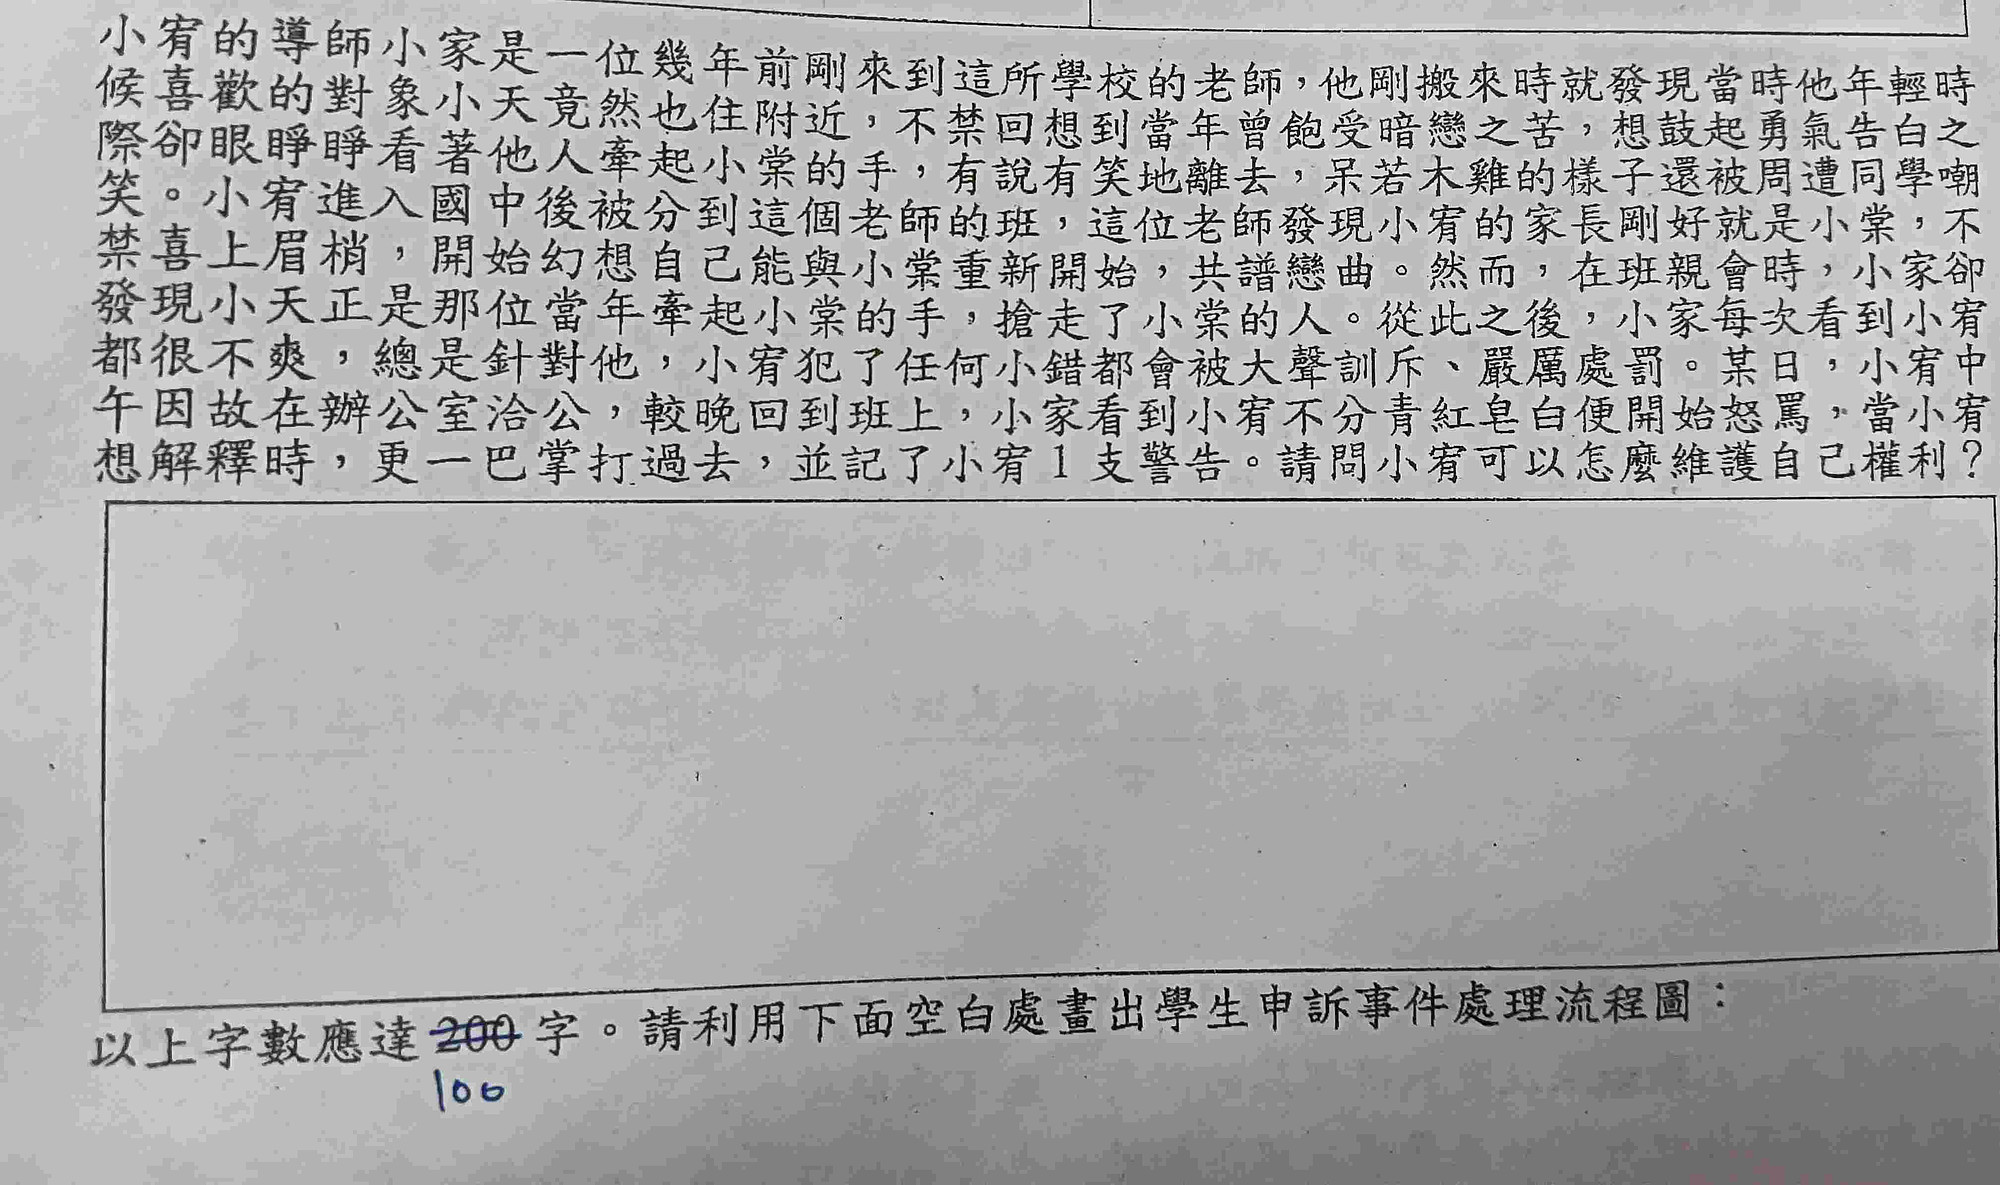 小宥的導師小家是一位幾年前剛來到這所學校的老師，他剛搬來時就發現當時他年輕時
候喜歡的對象小天竟然也住附近，不禁回想到當年曾飽受暗戀之苦，想鼓起勇氣告白之
際卻眼睜睜看著他人牽起小棠的手，有說有笑地離去，呆若木雞的樣子還被周遭同學嘲
笑。小宥進入國中後被分到這個老師的班，這位老師發現小宥的家長剛好就是小棠，不
禁喜上眉梢，開始幻想自己能與小棠重新開始，共譜戀曲。然而，在班親會時，小家卻
發現小天正是那位當年牽起小棠的手，搶走了小棠的人。從此之後，小家每次看到小宥
都很不爽，總是針對他，小宥犯了任何小錯都會被大聲訓斥、嚴厲處罰。某日，小宥中
午因故在辦公室洽公，較晚回到班上，小家看到小宥不分青紅皂白便開始怒罵，當小宥
想解釋時，更一巴掌打過去，並記了小宥1支警告。請問小宥可以怎麼維護自己權利？
以上字數應達200字。請利用下面空白處畫出學生申訴事件處理流程圖：
100